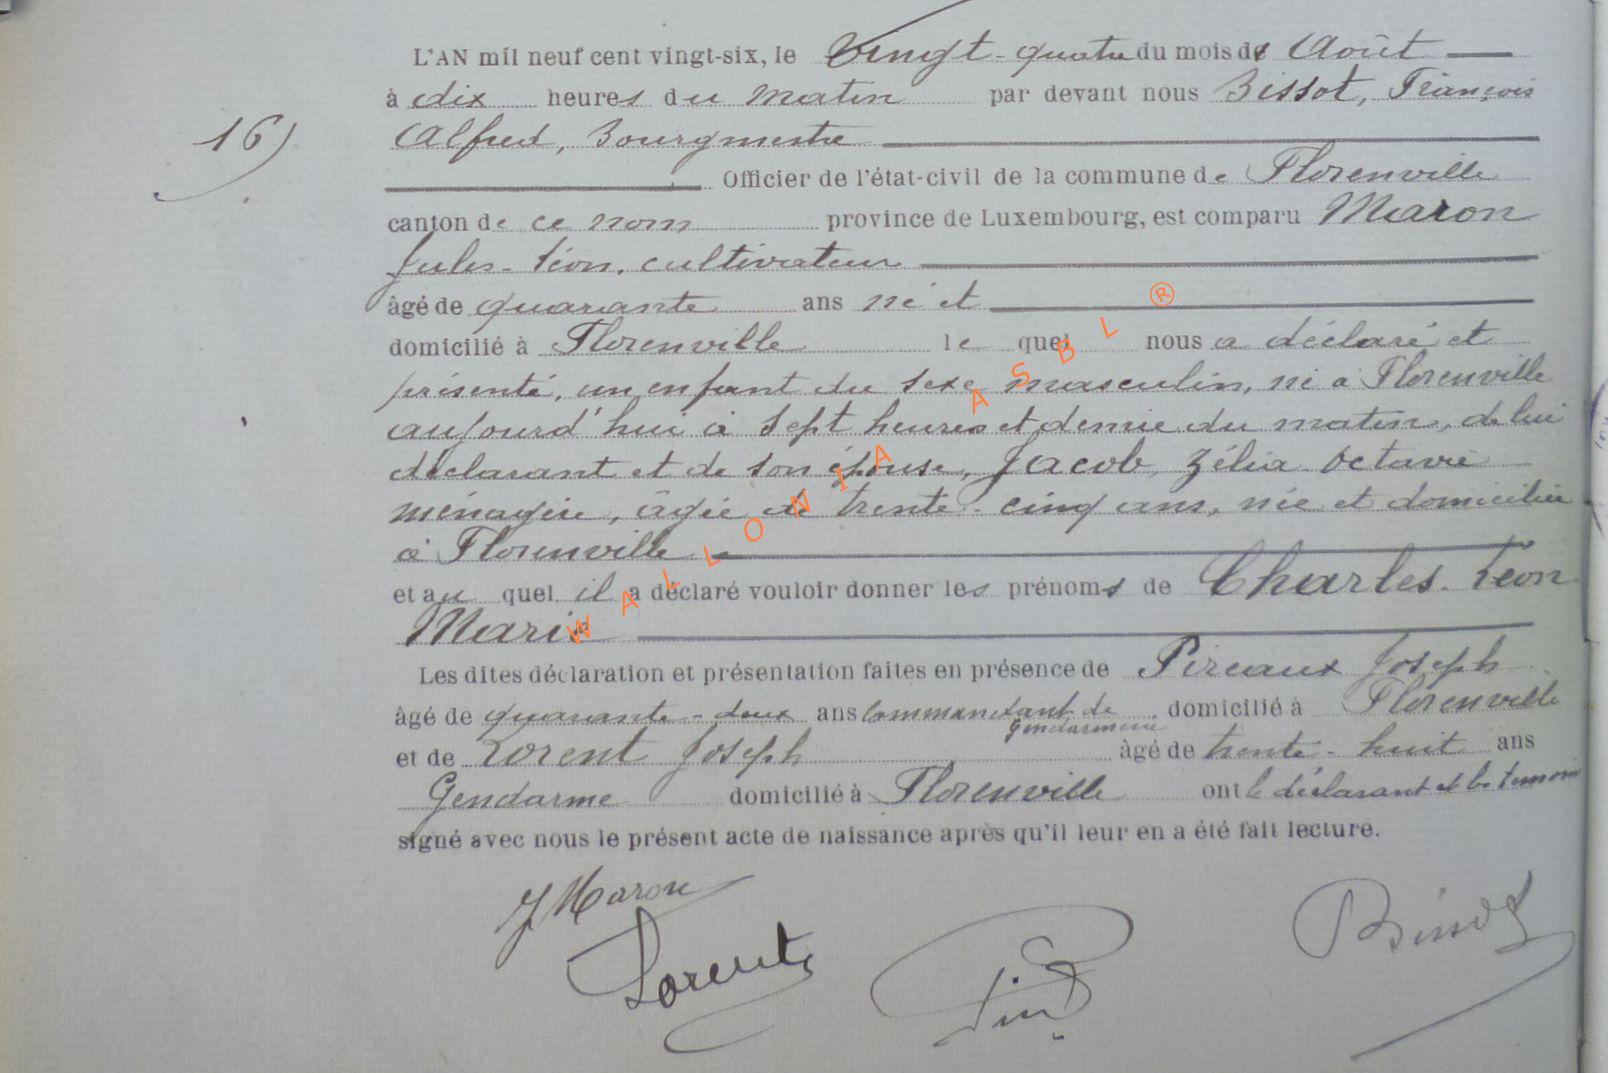 L'AN mil neuf cent vingt-six, le Vingt-quatre du mois de Août
à dix heures du matin par devant nous Bissot, François
16) Alfred, Bourgmestre
Officier de l'état-civil de la commune de Florenville
canton de ce nom province de Luxembourg, est comparu Maron
Jules-Léon, cultivateur
âgé de quarante ans né et
domicilié à Florenville le quel nous a déclaré et
présenté, un enfant du sexe masculin, né à Florenville
aujourd'hui à sept heures et demie du matin, de lui
déclarant et de son épouse, Jacob, Zélia Octavie
ménagère, âgée de trente-cinq ans, née et domiciliée
à Florenville
et au quel il a déclaré vouloir donner les prénoms de Charles-Léon
Marie
Les dites déclaration et présentation faites en présence de Pireaux Joseph
âgé de quarante-deux ans Commandant de Gendarmerie domicilié à Florenville
et de Lorent Joseph âgé de trente-huit ans
Gendarme domicilié à Florenville ont le déclarant et les témoins
signé avec nous le présent acte de naissance après qu'il leur en a été fait lecture.
J Maron
Lorent
Bissot
WALLONIA ASBL ®